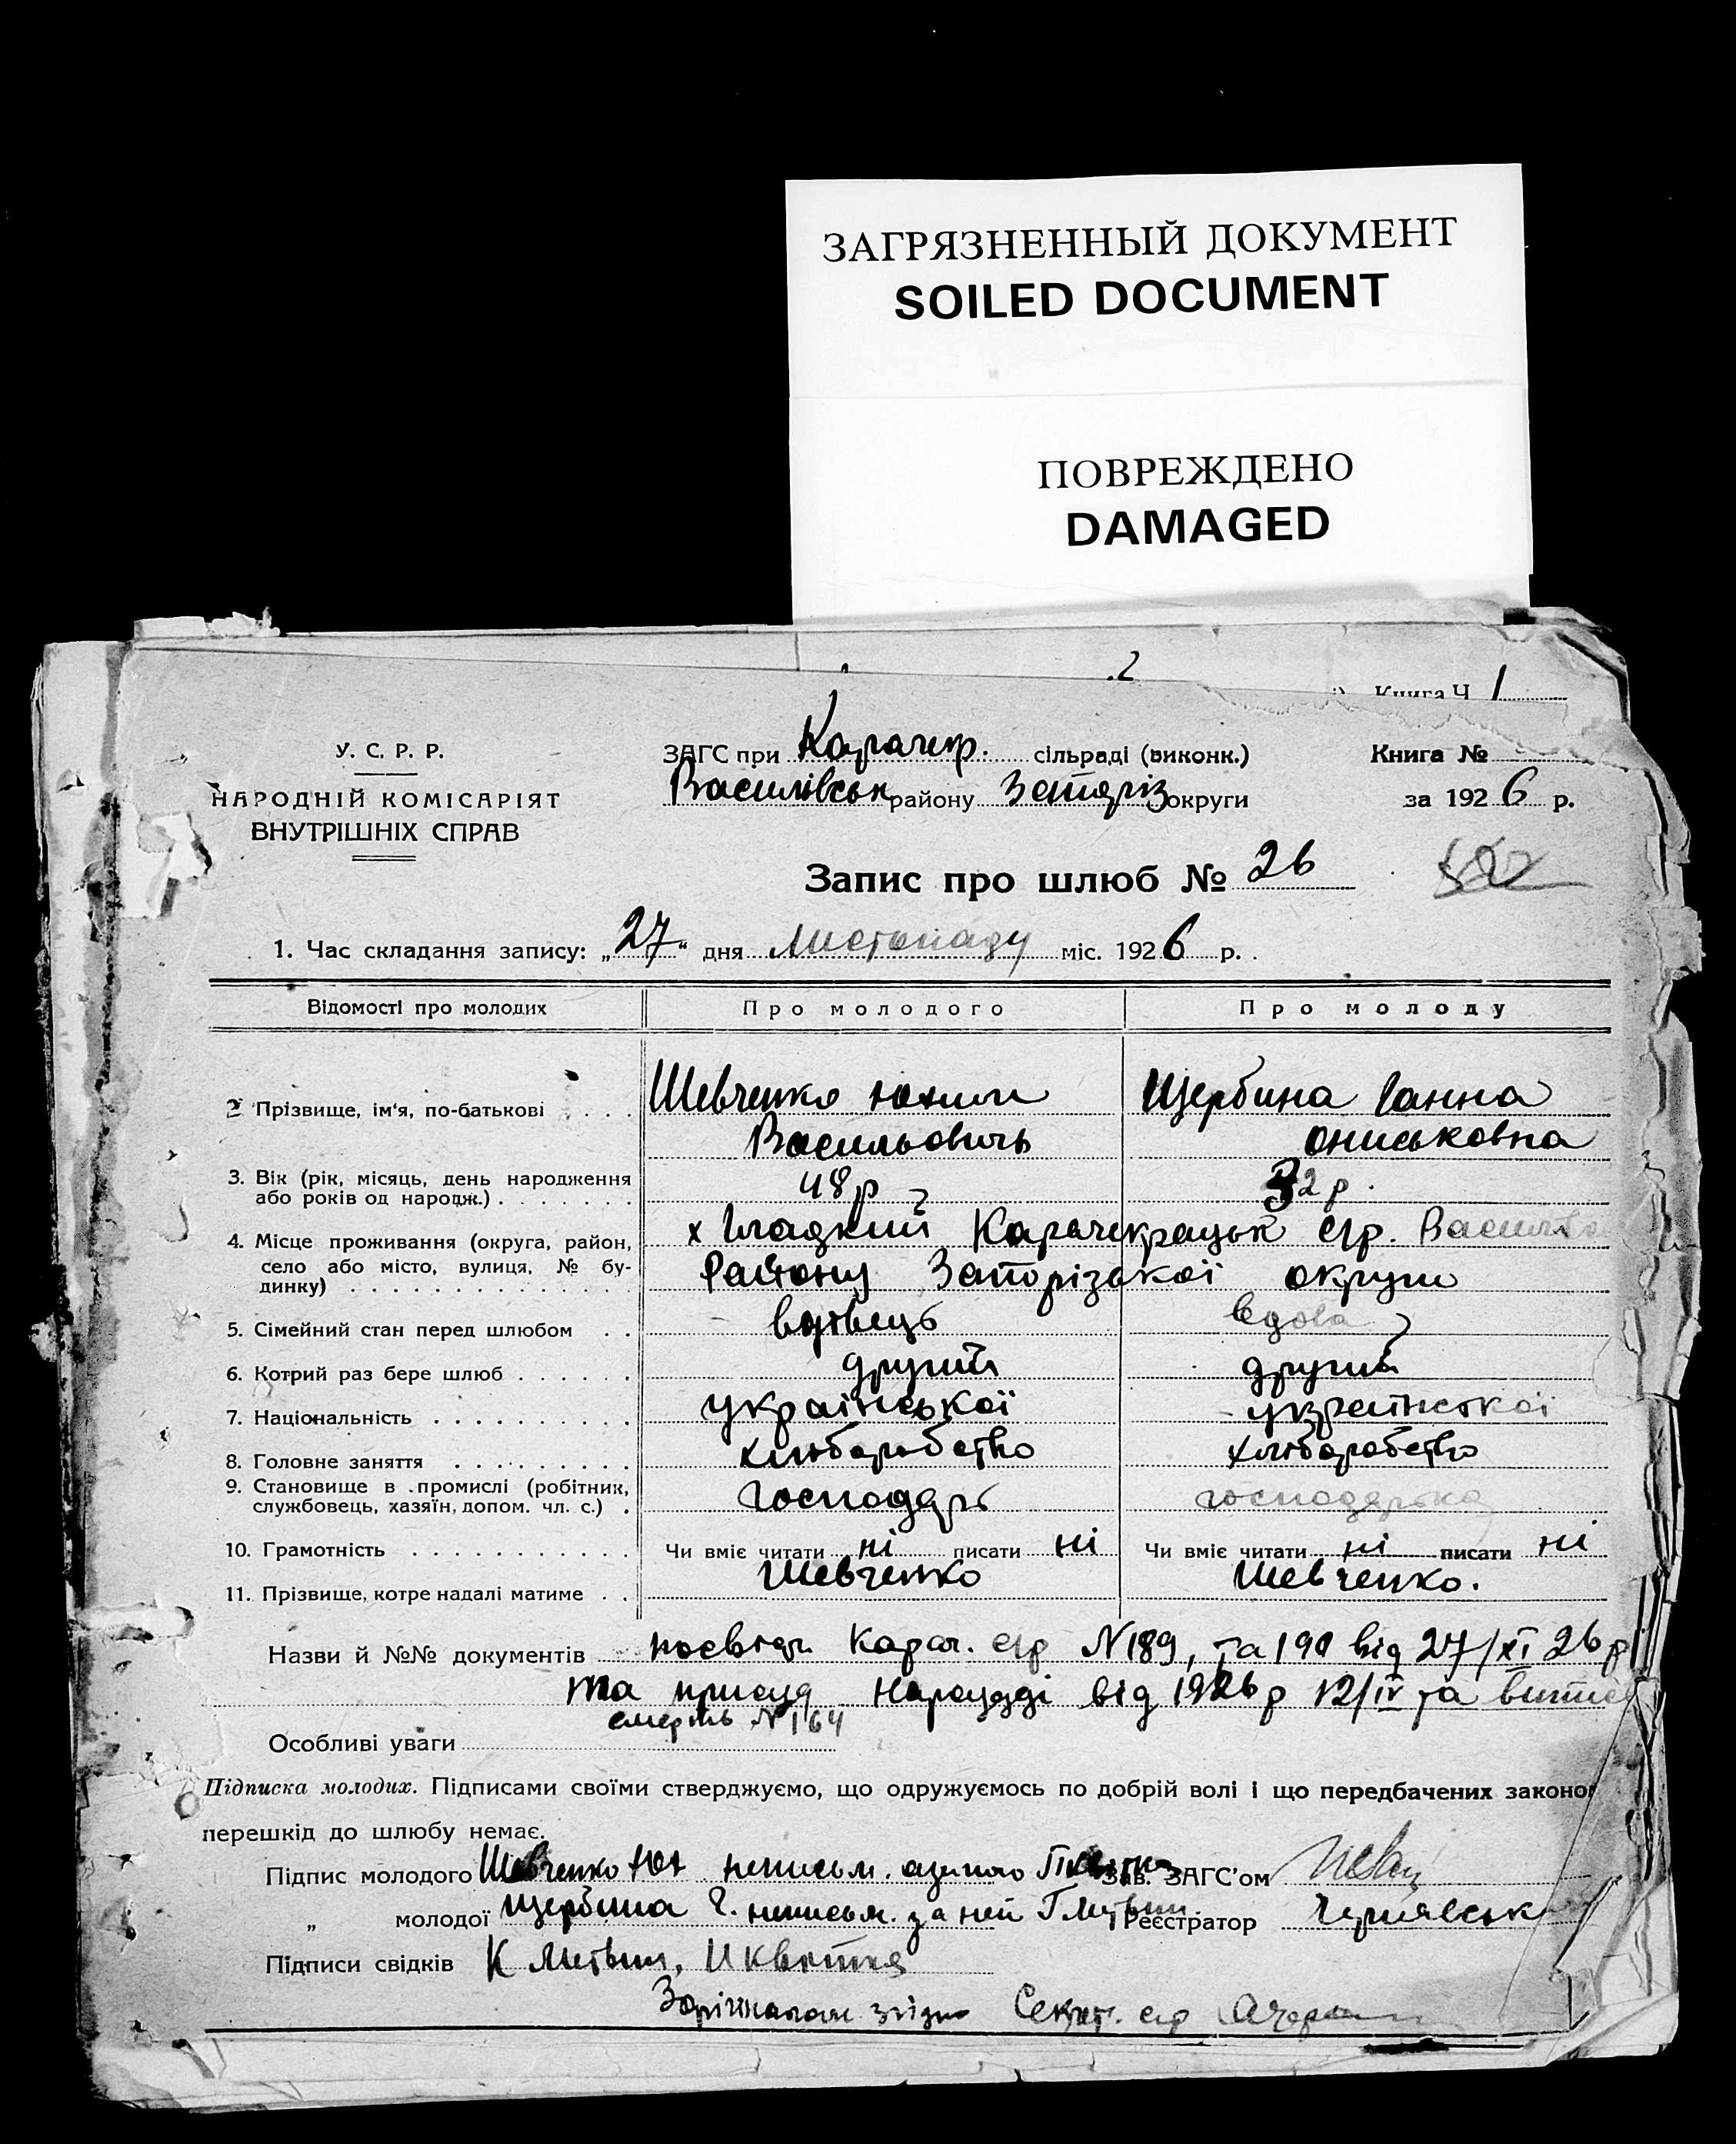 ЗАГРЯЗНЕННЫЙ ДОКУМЕНТ
SOILED DOCUMENT
ПОВРЕЖДЕНО
DAMAGED
2
Книга Ч 1
У. С. Р. Р.
НАРОДНІЙ КОМІСАРІЯТ
ВНУТРІШНІХ СПРАВ
ЗАГС при Карачекр. сільраді (виконк.)
Василівськ району Запоріз округи
Книга №
за 1926 р.
Запис про шлюб № 26
1. Час складання запису: „27“ дня Листопаду міс. 1926 р.
Відомості про молодих Про молодого Про молоду
2 Прізвище, ім'я, по-батькові . . . . Шевченко Юхим Щербина Ганна
Васильовичь Ониськовна
3. Вік (рік, місяць, день народження
або років од народж.) . . . . . . . 48 р 32 р.
4. Місце проживання (округа, район,
село або місто, вулиця, № бу-
динку) . . . . . . . . . . . . . .
х Гладкий Карачекрацьк с/р. Василів
Району Запорізької округи
5. Сімейний стан перед шлюбом . . вдівець вдова
6. Котрий раз бере шлюб . . . . . . другий другий
7. Національність . . . . . . . . . . української української
8. Головне заняття . . . . . . . . . хліборобство хліборобство
9. Становище в промислі (робітник,
службовець, хазяїн, допом. чл. с.) . господарь господарька
10. Грамотність . . . . . . . . . . . Чи вміє читати ні писати ні Чи вміє читати ні писати ні
11. Прізвище, котре надалі матиме . . Шевченко Шевченко.
Назви й №№ документів посвідч. Карач. с/р N 189, та 190 від 27/XI 26 р
та присуд Нарсудді від 1926 р 12/IV та витис
смерть N 164
Особливі уваги
Підписка молодих. Підписами своїми стверджуємо, що одружуємось по добрій волі і що передбачених законо
перешкід до шлюбу немає.
Підпис молодого Шевченко Юх неписьм. Зав. ЗАГС'ом
„ молодої Щербина Г. неписьм. за ней Г Литвин Реєстратор Чернявськ
Підписи свідків К Литвин, И Квитка
З оріги згідно Секрт. с/р